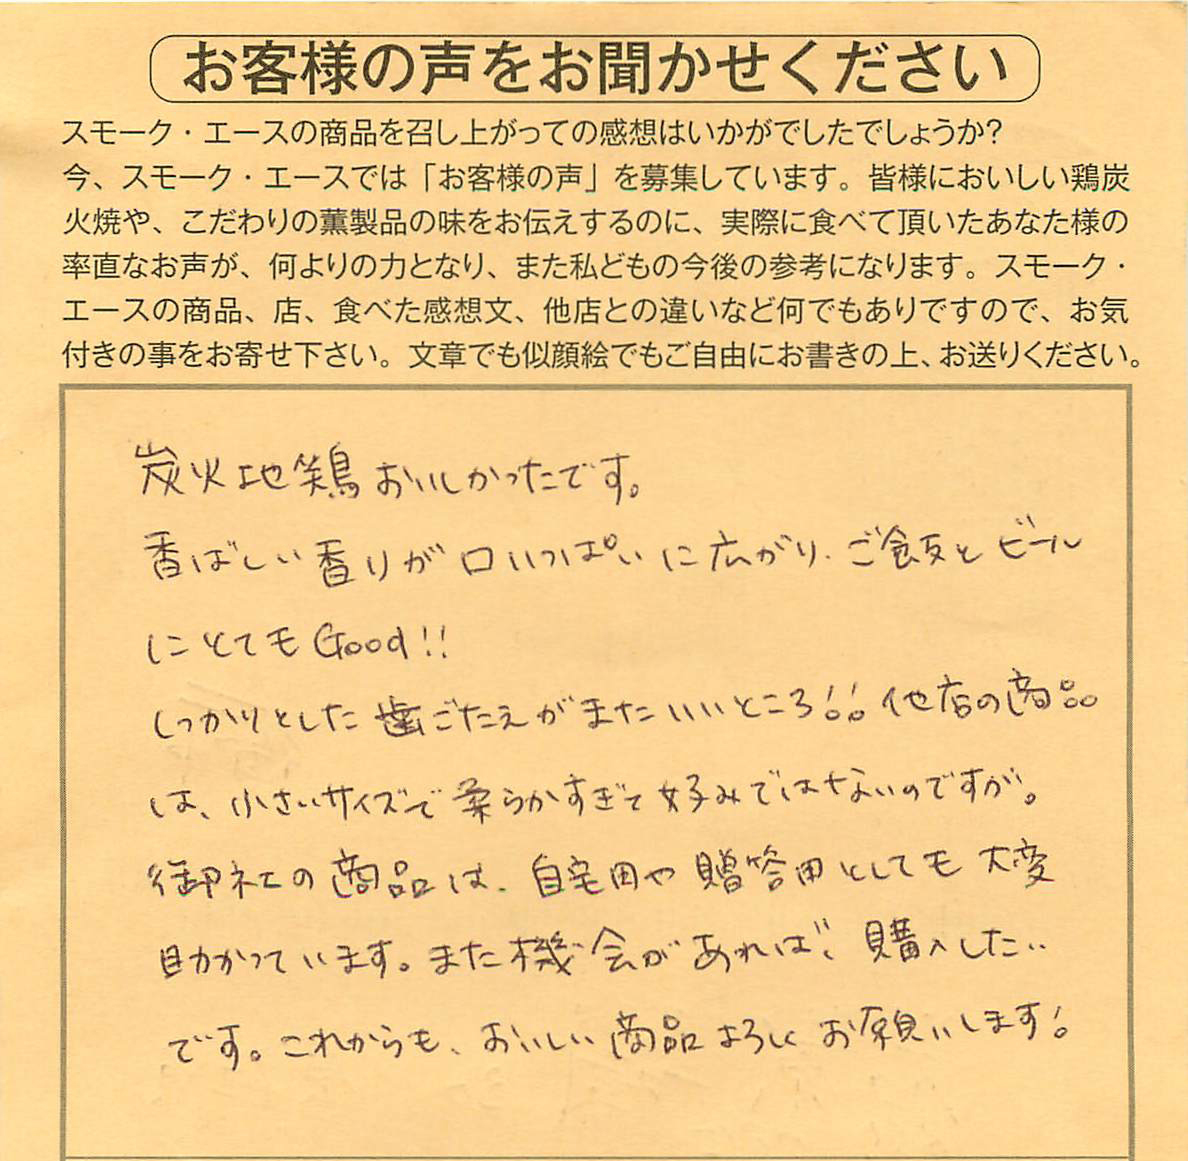 お客様の声をお聞かせください
スモーク・エースの商品を召し上がっての感想はいかがでしたでしょうか?
今、スモーク・エースでは「お客様の声」を募集しています。皆様においしい鶏炭
火焼や、こだわりの薫製品の味をお伝えするのに、実際に食べて頂いたあなた様の
率直なお声が、何よりの力となり、また私どもの今後の参考になります。スモーク・
エースの商品、店、食べた感想文、他店との違いなど何でもありですので、お気
付きの事をお寄せ下さい。文章でも似顔絵でもご自由にお書きの上、お送りください。
炭火地鶏おいしかったです。
香ばしい香りが口いっぱいに広がり、ご飯とビール
にとてもGood!!
しっかりとした歯ごたえがまたいいところ!!他店の商品
は、小さいサイズで柔らかすぎて好みではないのですが。
御社の商品は、自宅用や贈答用としても大変
助かっています。また機会があれば、購入したい
です。これからも、おいしい商品よろしくお願いします!